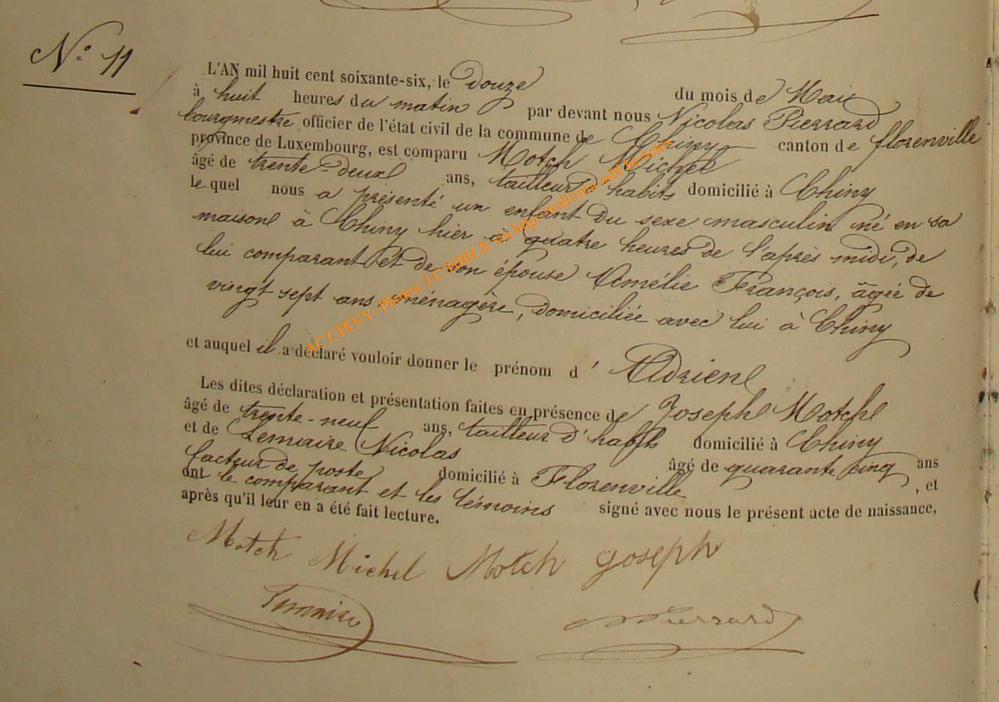 N° 11
L'AN mil huit cent soixante-six, le douze du mois de Mai
à huit heures du matin par devant nous Nicolas Pierrard
bourgmestre officier de l'état civil de la commune de Chiny canton de florenville
province de Luxembourg, est comparu Motch Michel
âgé de trente-deux ans, tailleur d'habits domicilié à Chiny
le quel nous a présenté un enfant du sexe masculin né en sa
maison à Chiny hier à quatre heures de l'après midi, de
lui comparant et de son épouse Amélie François, âgée de
vingt sept ans ménagère, domiciliée avec lui à Chiny
et auquel il a déclaré vouloir donner le prénom d' Adrien
Les dites déclaration et présentation faites en présence de Joseph Motch
âgé de trente-neuf ans, tailleur d'habits domicilié à Chiny
et de Lemaire Nicolas âgé de quarante cinq ans
facteur de poste domicilié à Florenville, et
ont le comparant et les témoins signé avec nous le présent acte de naissance,
après qu'il leur en a été fait lecture.
Motch Michel Motch joseph
Lemaire NPierrard